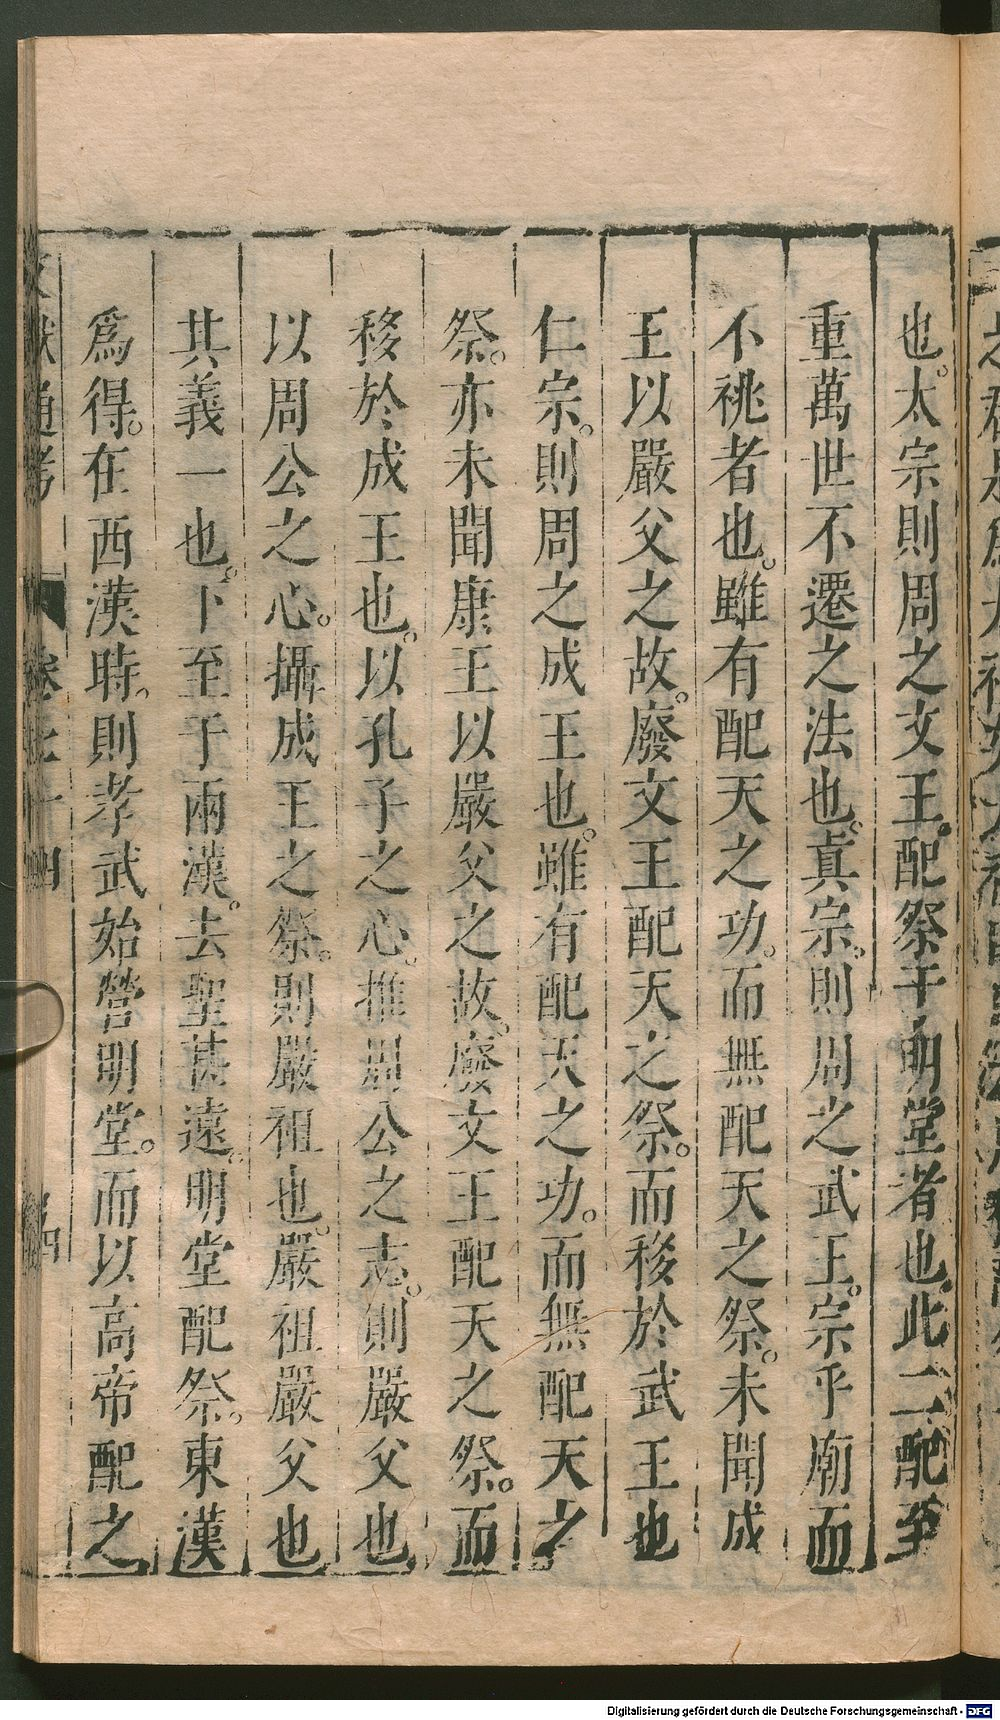 也。太宗則周之文王。配祭于明堂者也。此二配至
重萬世不遷之法也。眞宗。則周之武王。宗乎廟而
不祧者也。雖有配天之功。而無配天之祭。未聞成
王以嚴父之故。廢文王配天之祭。而移於武王也
仁宗。則周之成王也。雖有配天之功。而無配天之
祭。亦未聞康王以嚴父之故。廢文王配天之祭。而
移於成王也。以孔子之心。推周公之志。則嚴父也
以周公之心。攝成王之祭。則嚴祖也。嚴祖嚴父也
其義一也。卜至于兩漢。去聖甚遠。明堂配祭。東漢
爲得。在西漢時。則孝武始營明堂。而以高帝配之
Digitalisierung gefördert durch die Deutsche Forschungsgemeinschaft - DFG